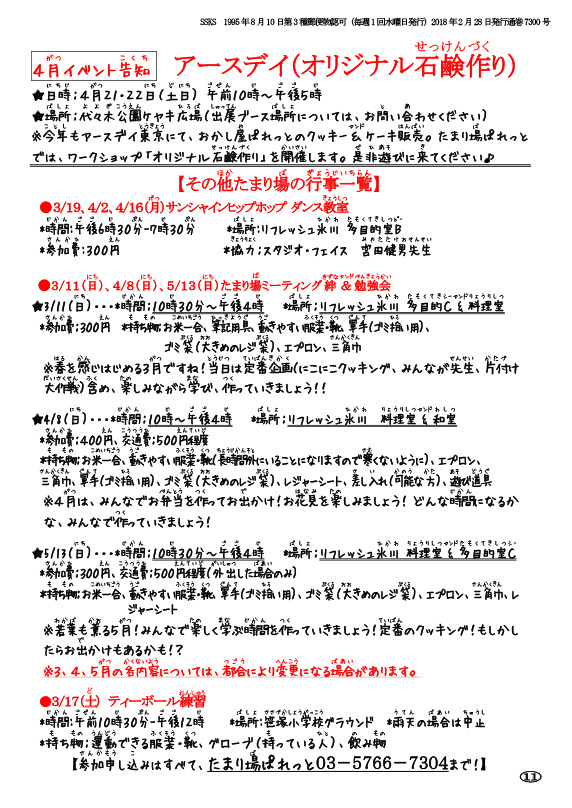 SSKS 1995年8月10日第3種郵便物認可(毎週1回水曜日発行)2018年2月28日発行通巻7300号
4月イベント告知 アースデイ(オリジナル石鹸作り)
★日時;4月21・22日(土日) 午前10時~午後5時
★場所;代々木公園ケヤキ広場(出展ブース場所については、お問い合わせください)
※今年もアースデイ東京にて、おかし屋ぱれっとのクッキー&ケーキ販売。たまり場ぱれっと
では、ワークショップ「オリジナル石鹸作り」を開催します。是非遊びに来てください♪
【その他たまり場の行事一覧】
●3/19、4/2、4/16(月)サンシャインヒップホップ ダンス教室
*時間;午後6時30分-7時30分 *場所;リフレッシュ氷川 多目的室B
*参加費;300円 *協力;スタジオ・フェイス 宮田健男先生
●3/11(日)、4/8(日)、5/13(日)たまり場ミーティング 絆 & 勉強会
★3/11(日)・・・*時間;10時30分~午後4時 *場所;リフレッシュ氷川 多目的室C & 料理室
*参加費;300円 *持ち物;お米一合、筆記用具、動きやすい服装・靴、軍手(ゴミ拾い用)、
ゴミ袋(大きめのレジ袋)、エプロン、三角巾
※春を感じはじめる3月ですね!当日は定番企画(にこにこクッキング、みんなが先生、片付け
大作戦)含め、楽しみながら学び、作っていきましょう!!
★4/8(日)・・・*時間;10時~午後4時 *場所;リフレッシュ氷川 料理室 & 和室
*参加費;400円、交通費;500円程度
*持ち物;お米一合、動きやすい服装・靴(長時間外にいることになりますので寒くないように)、エプロン、
三角巾、軍手(ゴミ拾い用)、ゴミ袋(大きめのレジ袋)、レジャーシート、差し入れ(可能な方)、遊び道具
※4月は、みんなでお弁当を作ってお出かけ!お花見を楽しみましょう! どんな時間になるか
な、みんなで作っていきましょう!
★5/13(日)・・・*時間;10時30分~午後4時 *場所;リフレッシュ氷川 料理室 & 多目的室C
*参加費;300円、交通費;500円程度(外出した場合のみ)
*持ち物;お米一合、動きやすい服装・靴、軍手(ゴミ拾い用)、ゴミ袋(大きめのレジ袋)、エプロン、三角巾、レ
ジャーシート
※若葉も薫る5月!みんなで楽しく学ぶ時間を作っていきましょう!定番のクッキング!もしかし
たらお出かけもあるかも!?
※3、4、5月の各内容については、都合により変更になる場合があります。
●3/17(土) ティーボール練習
*時間;午前10時30分-午後12時 *場所;笹塚小学校グラウンド *雨天の場合は中止
*持ち物;運動できる服装・靴、グローブ(持っている人)、飲み物
【参加申し込みはすべて、たまり場ぱれっと03-5766-7304まで!】
11